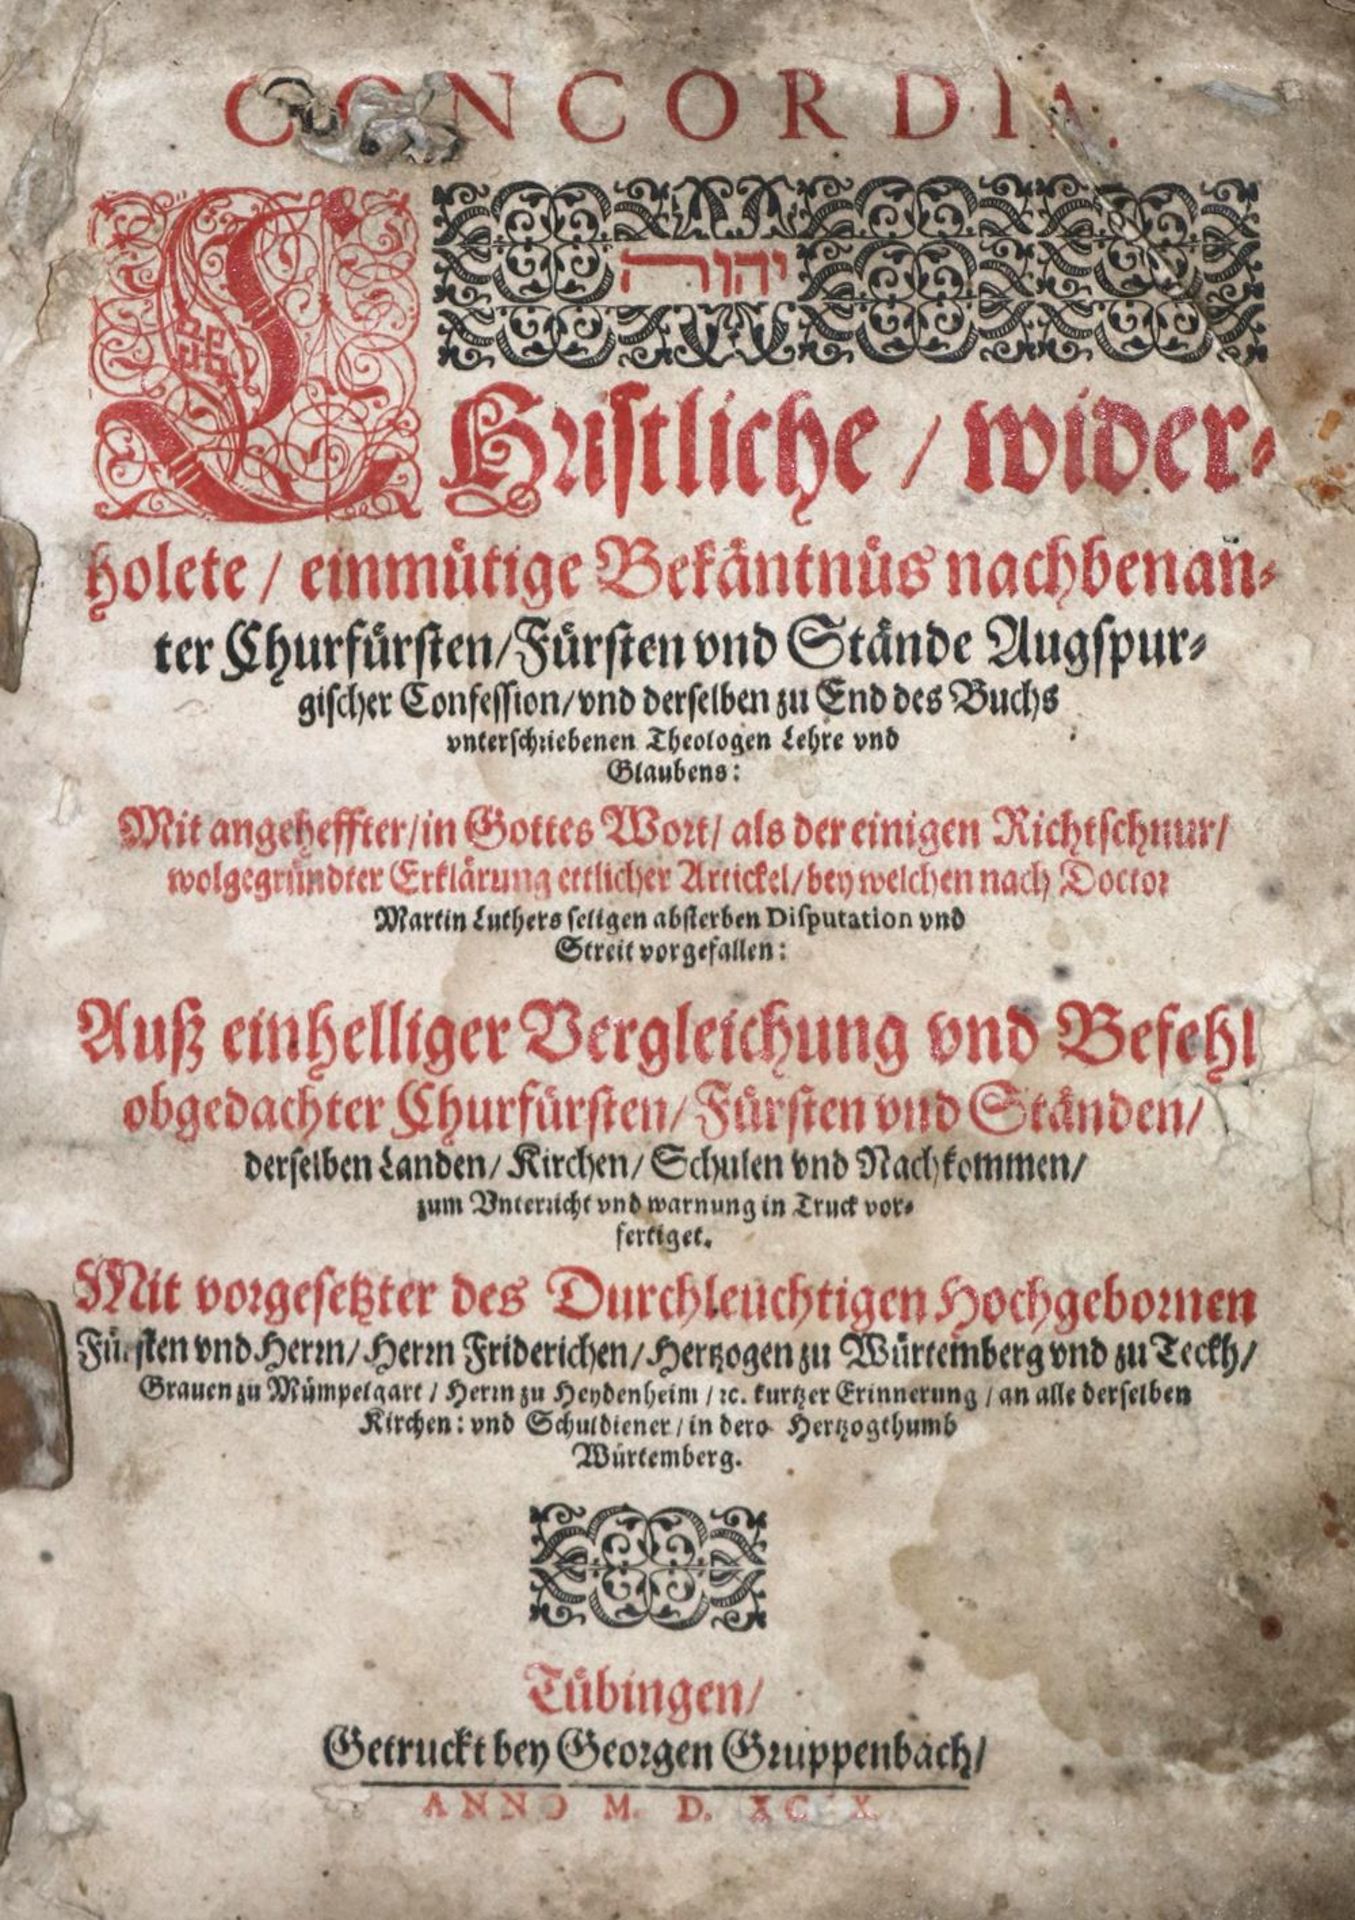 CONCORDIA.
יהוה
CHristliche / wider-
holete / einmütige Bekäntnüs nachbenan-
ter Churfürsten / Fürsten vnd Stände Augspur-
gischer Confession / vnd derselben zu End des Buchs
vnterschriebenen Theologen Lehre vnd
Glaubens:
Mit angeheffter / in Gottes Wort / als der einigen Richtschnur /
wolgegründter Erklärung ettlicher Artickel / bey welchen nach Doctor
Martin Luthers seligen absterben Disputation vnd
Streit vorgefallen:
Auß einhelliger Vergleichung vnd Befehl
obgedachter Churfürsten / Fürsten vnd Ständen /
derselben Landen / Kirchen / Schulen vnd Nachkommen /
zum Vnterricht vnd warnung in Truck vor-
fertiget.
Mit vorgesetzter des Durchleuchtigen Hochgebornen
Fürsten vnd Herrn / Herrn Friderichen / Hertzogen zu Würtemberg vnd zu Teckh /
Grauen zu Mümpelgart / Herrn zu Heydenheim / ꝛc. kurtzer Erinnerung / an alle derselben
Kirchen: vnd Schuldiener / in dero Hertzogthumb
Würtemberg.
Tübingen /
Getruckt bey Georgen Gruppenbach /
ANNO M. D.